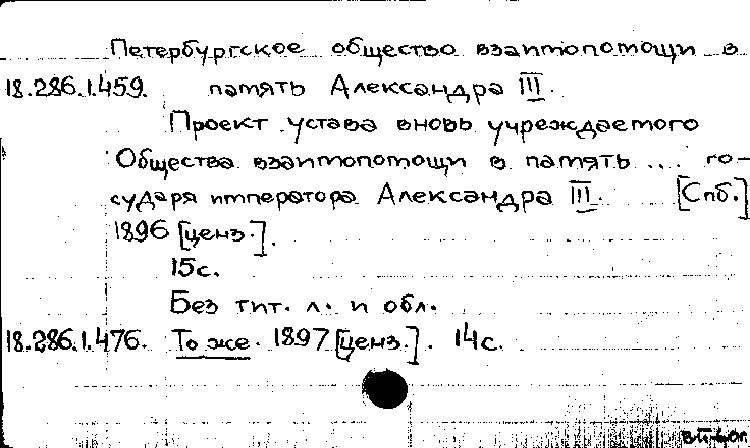 Петербургское общество взаимопомощи в
18.286.1.459. память Александра III.
Проект устава вновь учреждаемого
Общества взаимопомощи в память ... го-
сударя императора Александра III. [Спб.]
1896 [ценз.].
15с.
Без тит. л. и обл.
18.286.1.476. То же. 1897 [ценз.]. 14с.